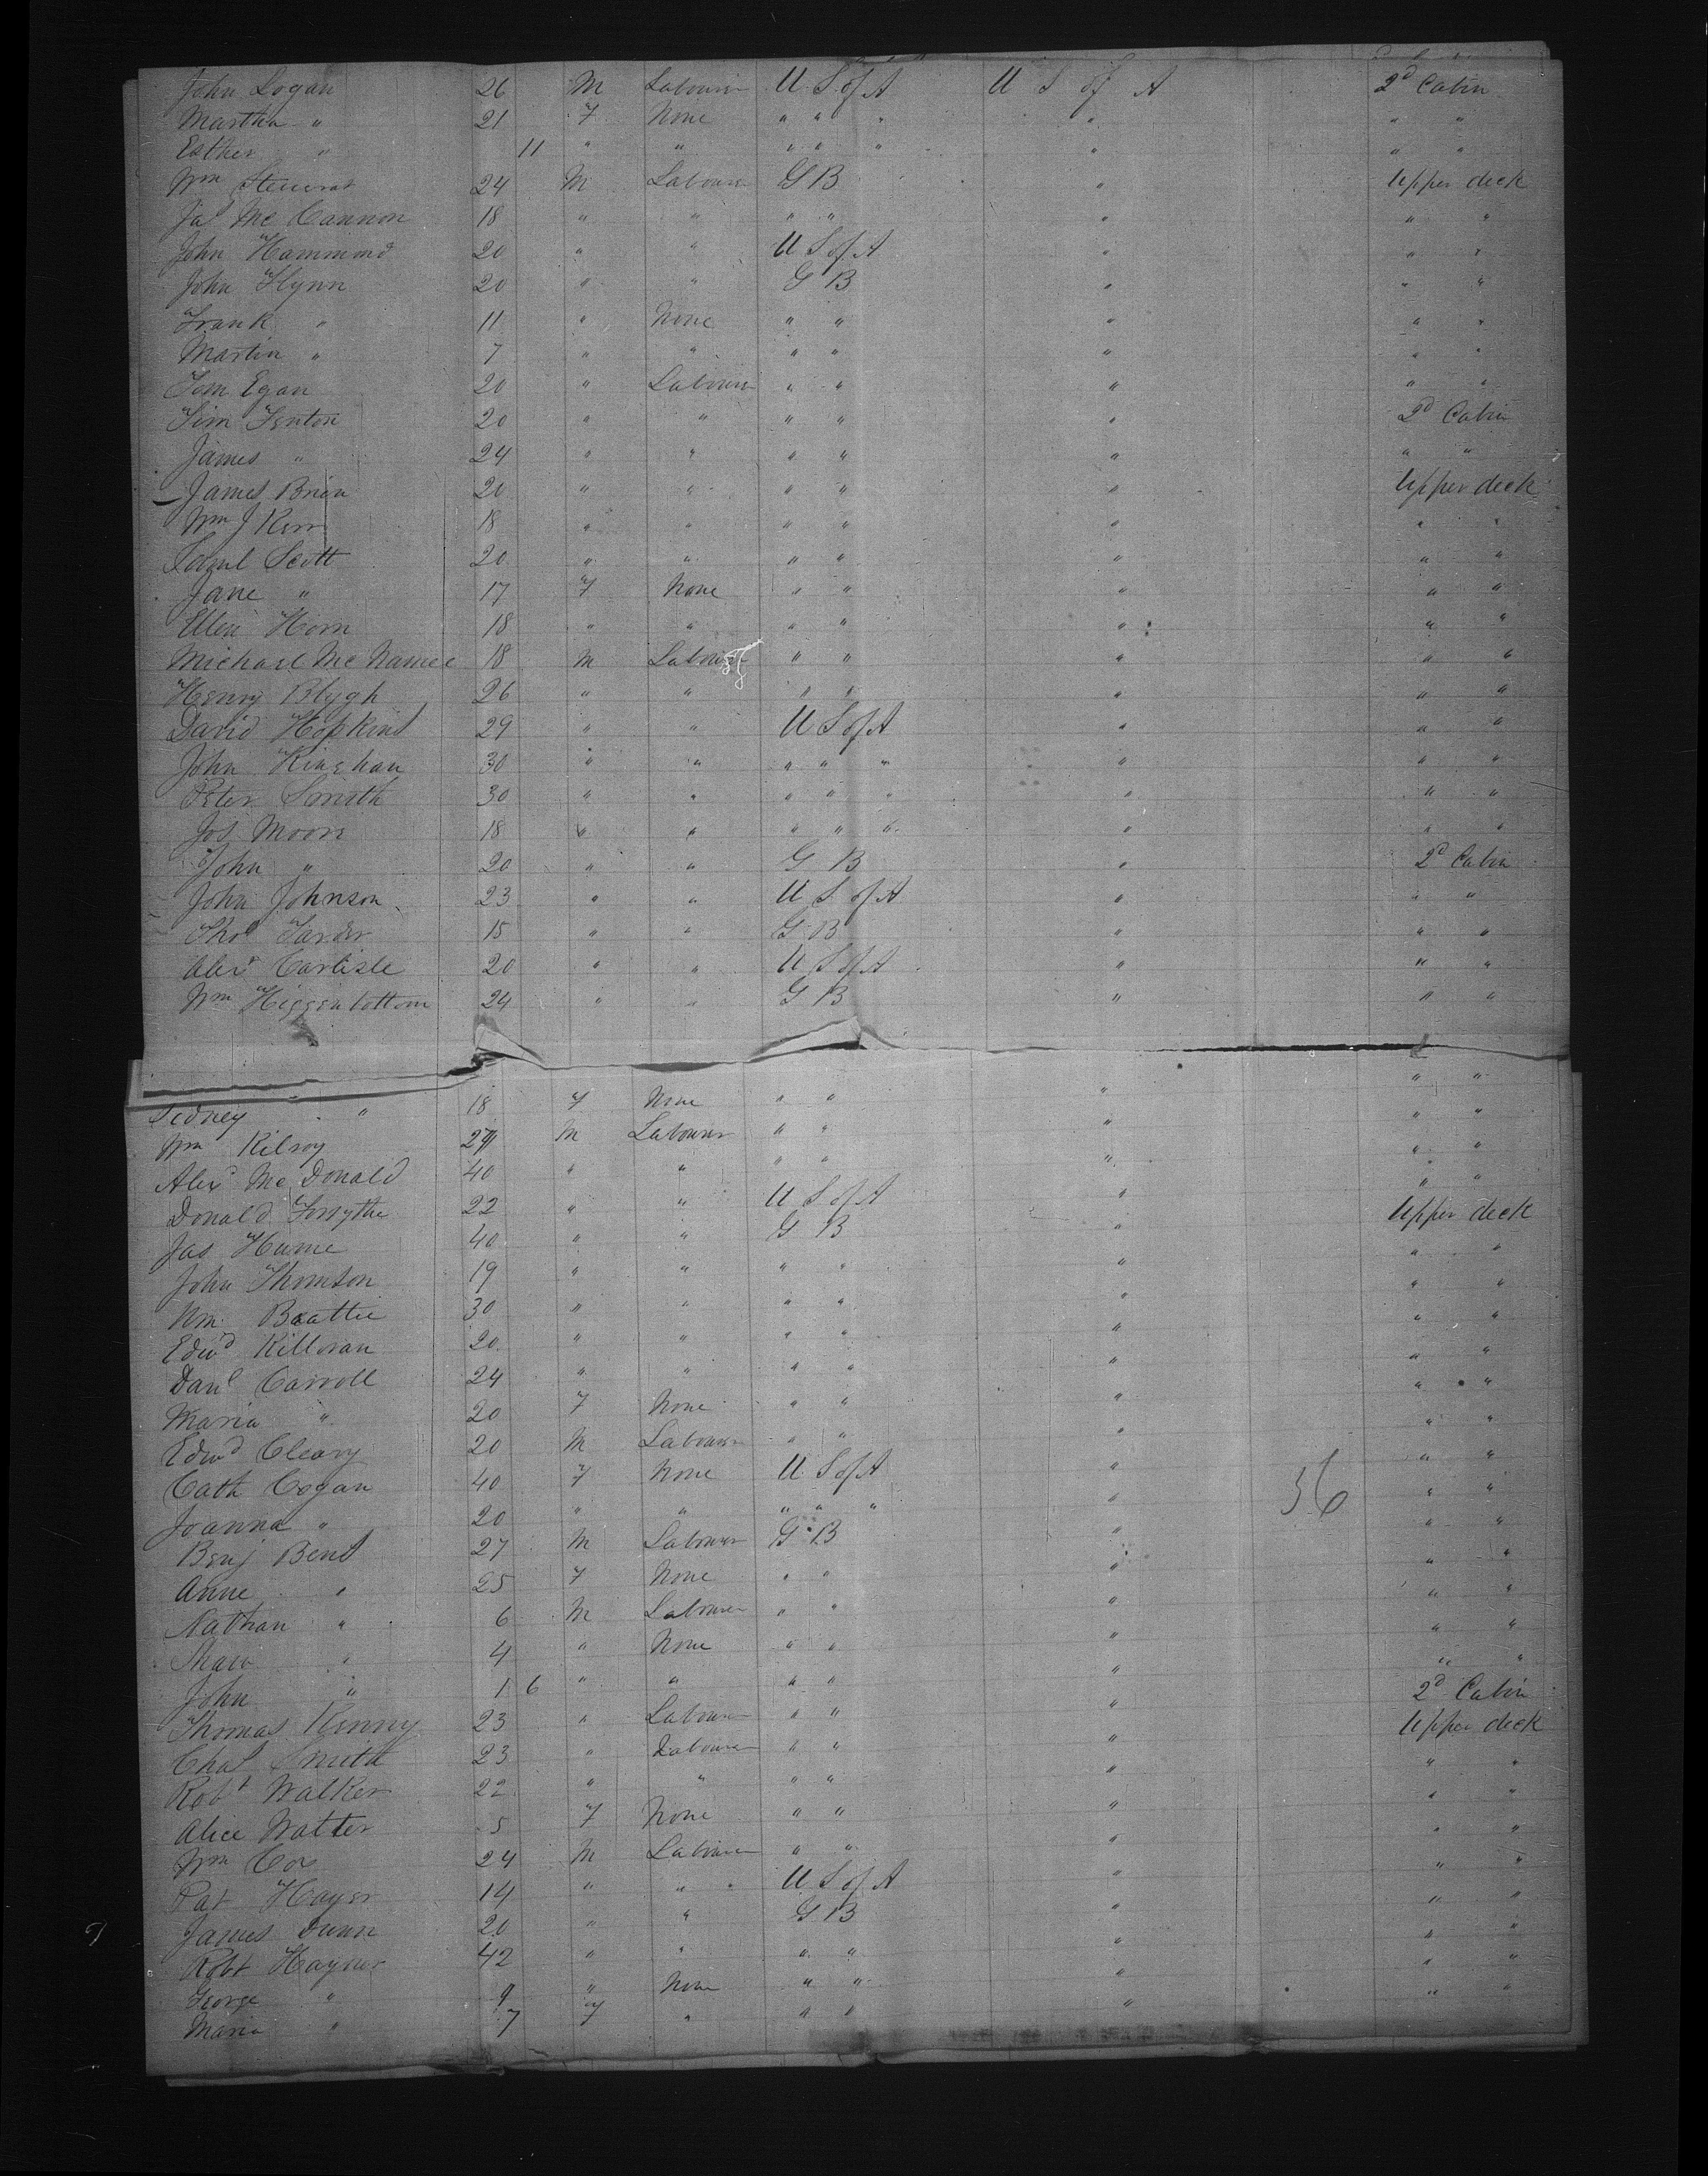 John Logan 26 M Labourer U S of A U S of A 2d Cabin
Martha " 21 F None " " " " " "
Esther " 11 " " " " " " " "
Wm Stewart 24 M Labourer G B " Upper deck
Jas Mc Cannon 18 " " " " " " "
John Hammond 20 " " U S of A " " "
John Flynn 20 " " G B " " "
Frank " 11 " None " " " " "
Martin " 7 " " " " " " "
Tom Egan 20 " Labourer " " " " "
Tim Fenton 20 " " " " " 2d Cabin
James " 24 " " " " " " "
James Brien 20 " " " " " Upper deck
Wm J Kerr 18 " " " " " " "
Saml Scott 20 " " " " " " "
Jane " 17 F None " " " " "
Ellen Horn 18 " " " " " " "
Michael Mc Namee 18 M Labourer " " " " "
Henry Blygh 26 " " " " " " "
David Hopkins 29 " " U S of A " " "
John 30 " " " " " " " "
Peter Smith 30 " " " " " " " "
Jos Moore 18 " " " " " " " "
John " 20 " " G B " 2d Cabin
John Johnson 23 " " U S of A " " "
Thos 15 " " G B " " "
Alexr Carlisle 20 " " U S of A " " "
Wm Higginbottom 24 " " G B " " "
" "
Sidney " 18 F None " " " " "
Wm Kilroy M Labourer " " " " "
Alexr Mc Donald 40 " " " " " " "
Donald Forsythe 22 " " U S of A " Upper deck
Jas Hume 40 " " G B " " "
John Thomson 19 " " " " " " "
Wm Beattie 30 " " " " " " "
Edwd Killoran 20 " " " " " " "
Danl Carroll 24 " " " " " " "
Maria " 20 F None " " " " "
Edwd Cleary 20 M Labourer " " " " "
Cath Cogan 40 F None U S of A " " "
Joanna " 20 " " " " " " 56 " "
Benj Bent 27 M Labourer G B " " "
Anne " 25 F None " " " " "
Nathan " 6 M Labourer " " " " "
Shaw " 4 " None " " " " "
John " 1 6 " " " " " " "
Thomas Kenny 23 " Labourer " " " 2d Cabin
Chas Smith 23 " Labourer " " " Upper deck
Robt Walker 22 " " " " " " "
Alice Walter 5 F None " " " " "
Wm Cox 24 M Labourer " " " " "
Pat Hayes 14 " " U S of A " " "
James Dunn 20 " " G B " " "
Robt Haynes 42 " " " " " " "
George " 9 " None " " " " "
Maria " 7 F " " " "